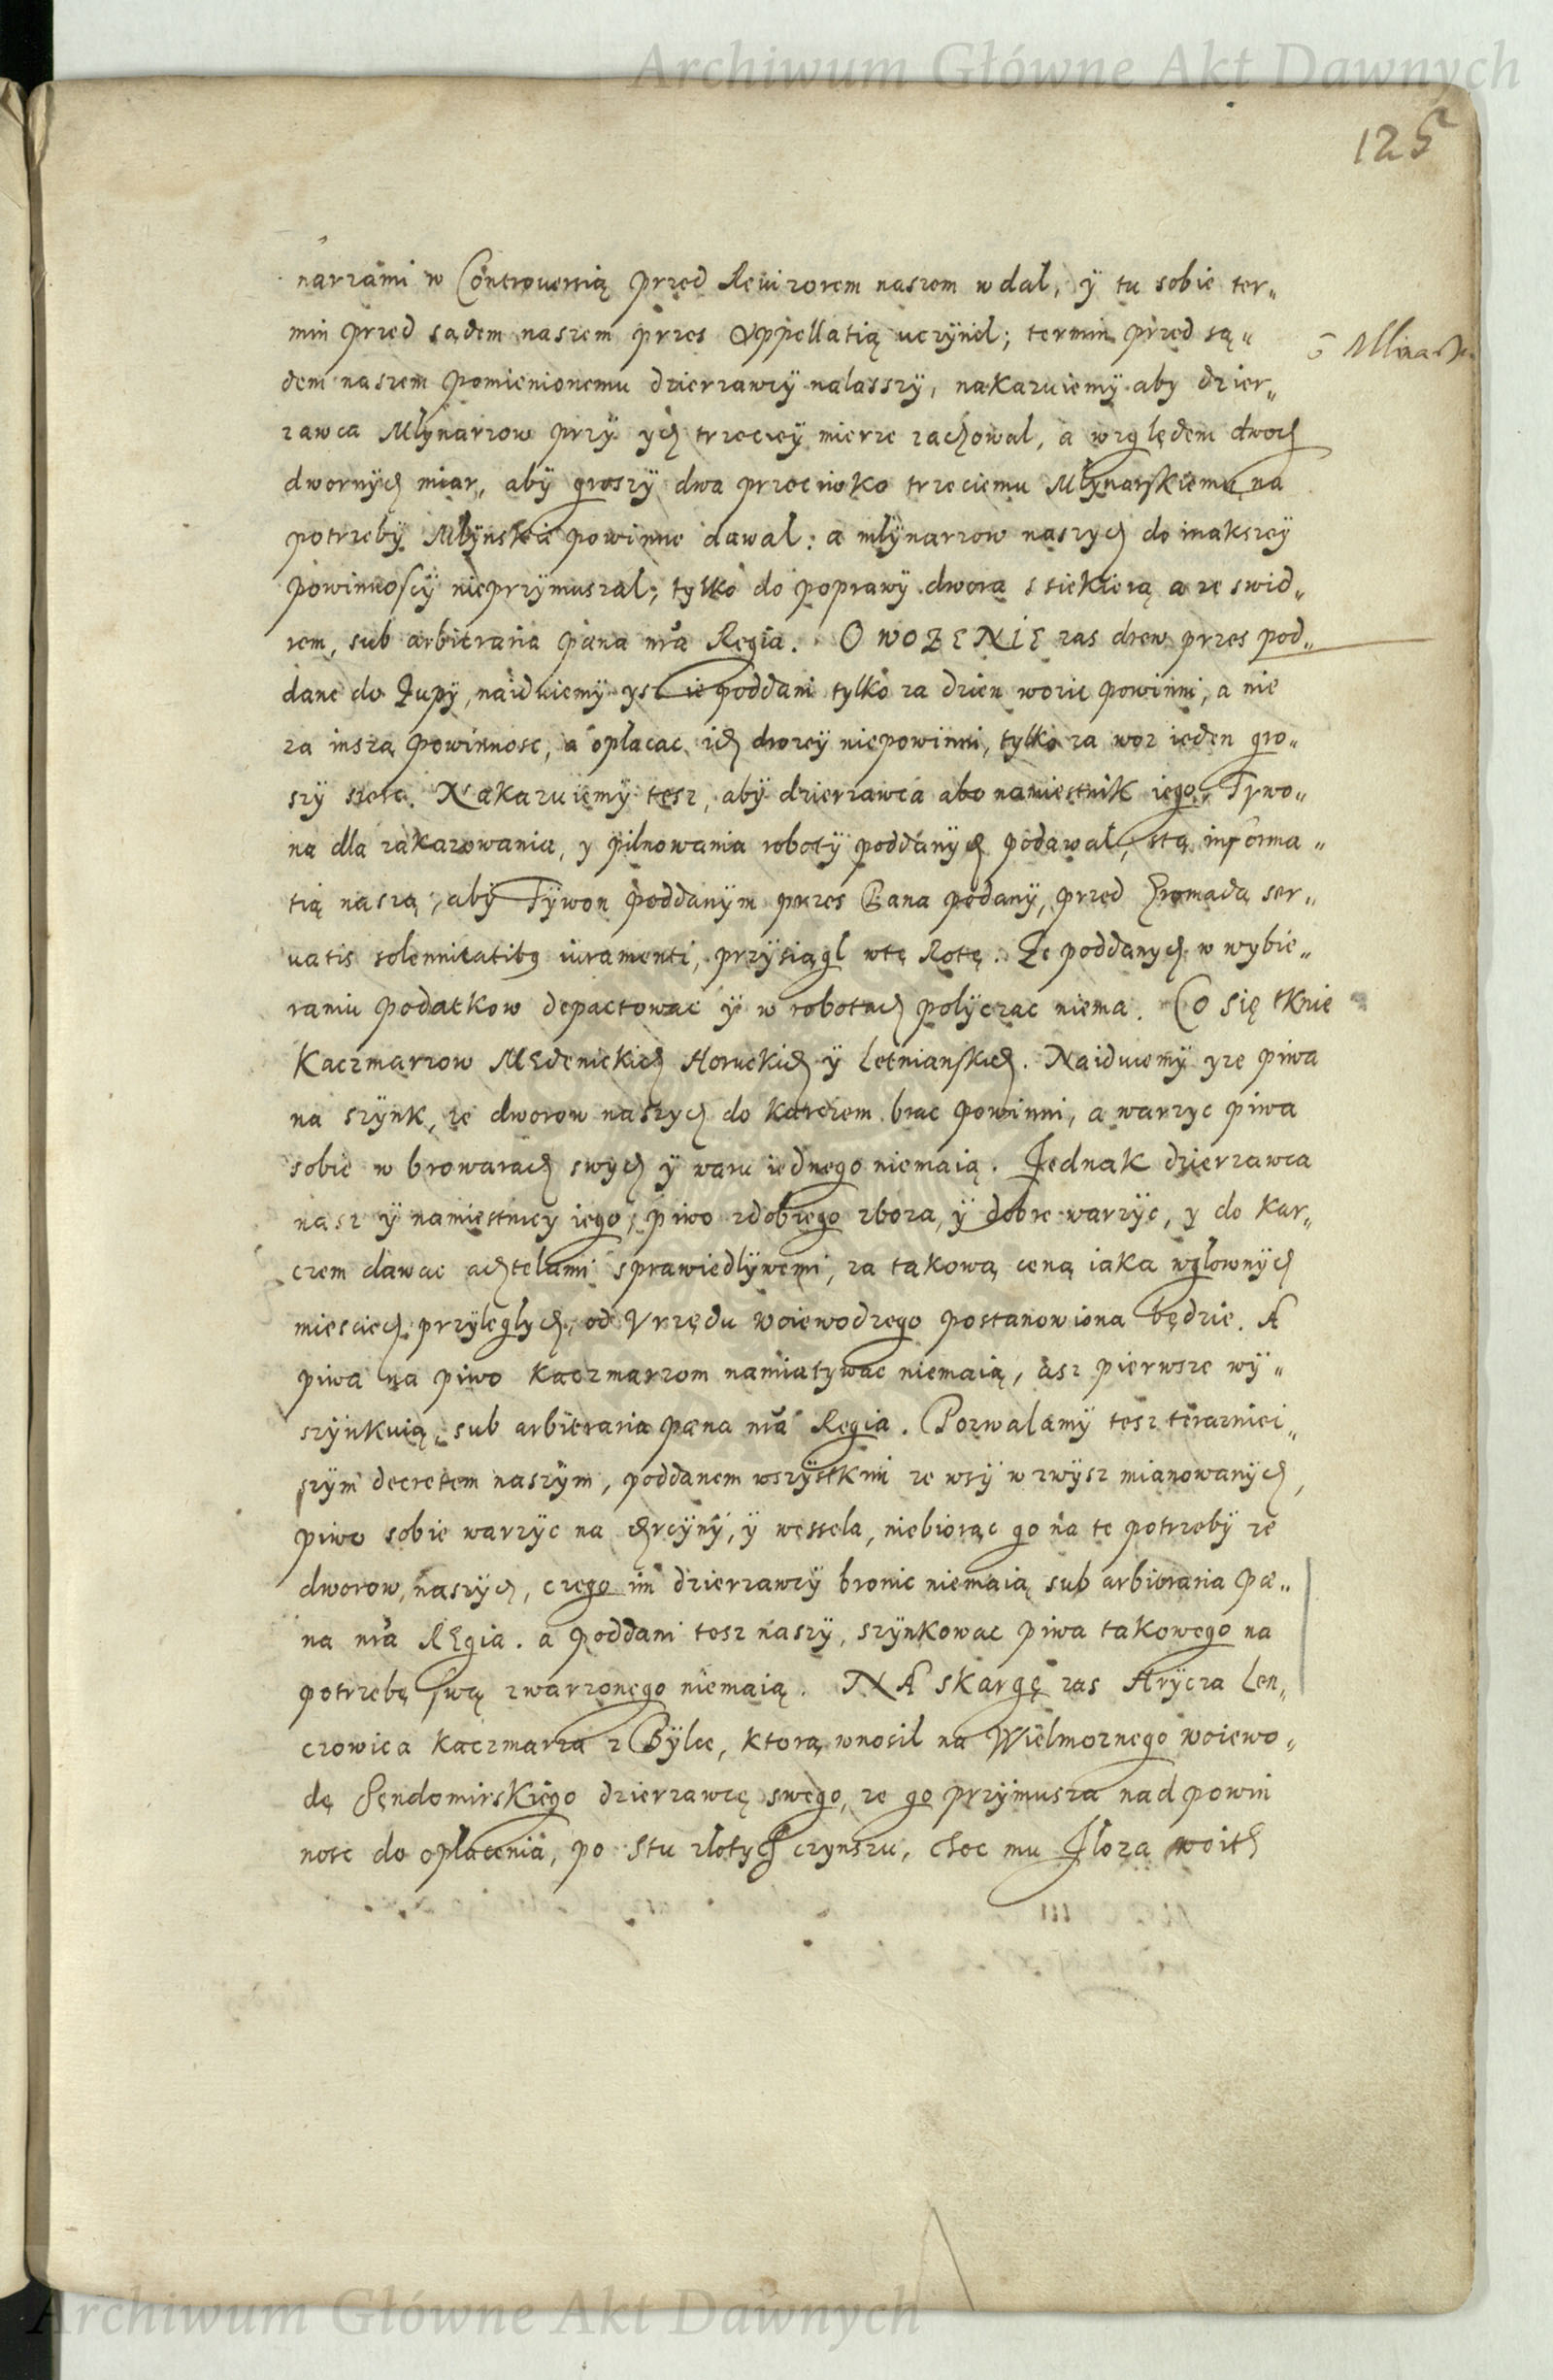 Archiwum Główne Akt Dawnych
125
narzami w Controuersią przed Reuizorem naszem wdal, ÿ tu sobie ter„
min przed sądem naszem przes Appellatią uczÿnil; termin przed są„
o Mlinach
dem naszem pomienionemu dzierzawcÿ nalasszÿ, nakazuiemÿ aby dzier„
zawca Mlÿnarzow przÿ ych trzecieÿ mierze zachowal, a względem dwoch
dwornÿch miar, abÿ groszÿ dwa przeciwko trzeciemu Mlÿnarskiemu na
potrzebÿ Mlÿnskie powinne dawal: a mlÿnarzow naszÿch do inakszeÿ
powinnoscÿ nieprzÿmuszal; tylko do poprawÿ dwora s siekierą a ze swid„
rem, sub arbitraria pæna nra Regia. O WOZENIE zas drew przes pod„
dane do Zupÿ, naiduiemÿ ysz ie poddani tylko za dzien wozic powinni, a nie
za inszą powinnosc, a oplacac ich drozeÿ niepowinni, tylko za woz ieden gro„
szÿ szesc. Nakazuiemÿ tesz, abÿ dzierzawca abo namiestnik iego, Tywo„
na dla zakazowania, y pilnowania robotÿ poddanÿch podawal, stą informa„
tią naszą, abÿ Tÿwon poddanÿm przes Pana podanÿ, przed Hromadą ser„
uatis solennitatibus iuramenti, przÿsiągl wtę Rotę. Ze poddanÿch w wybie„
raniu podatkow depactowac ÿ w robotach polÿczac niema. Co się tknie
Kaczmarzow Medenickich Horuckich ÿ Letnianskich. Naiduiemÿ yze piwa
na szÿnk, ze dworow naszÿch do karczem brac powinni, a warzyc piwa
sobie w browarach swÿch ÿ waru iednego niemaią. Jednak dzierzawca
nasz ÿ namiestnicy iego, piwo zdobrego zboza, ÿ dobre warzÿc, y do kar„
czem dawac achtelami sprawiedlÿwemi, za takową ceną iaka wglownÿch
miesciech przÿleglÿch, od Vrzędu woiewodzego postanowiona będzie. A
piwa na piwo kaczmarzom namiatywac niemaią, asz pierwsze wÿ„
szÿnkuią, sub arbitraria pæna nra Regia. Pozwalamÿ tesz terazniei„
szÿm decretem naszÿm, poddanem wszÿstkim ze wsÿ wzwÿsz mianowanÿch,
piwo sobie warzÿc na chrcÿnÿ, ÿ wessela, niebiorąc go na te potrzebÿ ze
dworow naszÿch, czego im dzierzawcÿ bronic niemaią sub arbitraria pæ„
na nra Regia. a poddani tesz naszÿ, szÿnkowac piwa takowego na
potrzebę swą zwarzonego niemaią. NA skargę zas Hrÿcza Len„
czowica kaczmarza z Bÿlce, ktorą wnosil na Wielmoznego woiewo„
dę Sęndomirskiego dzierzawcę swego, ze go przÿmusza nad powin
nosc do oplacenia, po stu zlotÿch czynszu, choc mu Jloza woith
Archiwum Główne Akt Dawnych